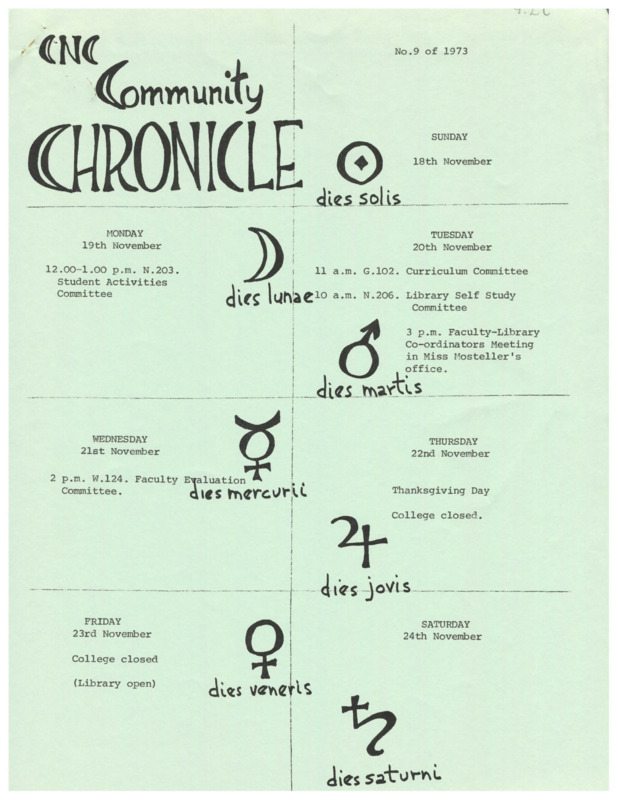 CNC
Community
CHRONICLE
No.9 of 1973
SUNDAY
18th November
dies solis
MONDAY
19th November
12.00-1.00 p.m. N.203.
Student Activities
Committee
dies lunae
TUESDAY
20th November
11 a.m. G.102. Curriculum Committee
10 a.m. N.206. Library Self Study
Committee
3 p.m. Faculty-Library
Co-ordinators Meeting
in Miss Mosteller's
office.
dies martis
WEDNESDAY
21st November
2 p.m. W.124. Faculty Evaluation
Committee.
dies mercurii
THURSDAY
22nd November
Thanksgiving Day
College closed.
dies jovis
FRIDAY
23rd November
College closed
(Library open)
dies veneris
SATURDAY
24th November
dies saturni